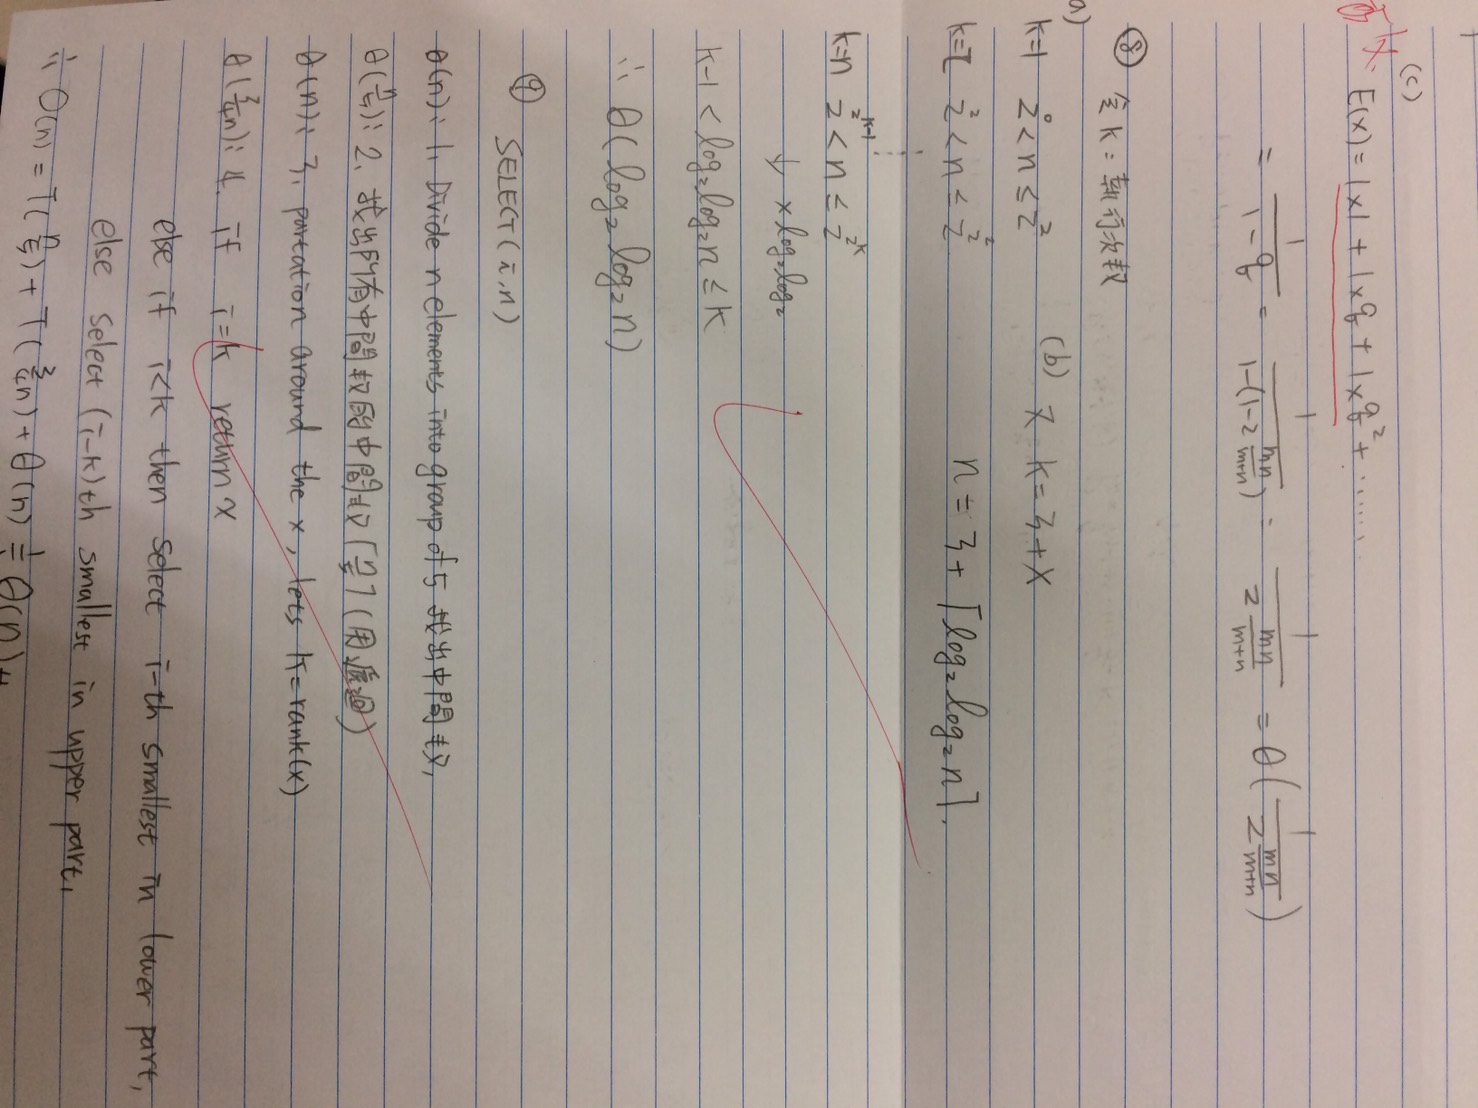 (c)
E(x) = 1x1 + 1xq + 1xq² + ......
= 1/(1-q) = 1/(1-(1-2 mn/(m+n))) = 1/(2 mn/(m+n)) = θ(1/(2 mn/(m+n)))
⑧ 令 k : 執行次數
a)
k=1 2^0 < n ≤ 2^2
(b) 又 k = 3 + x
k=2 2^2 < n ≤ 2^2^2
n = 3 + ⌈log₂ log₂ n⌉.
⋮
k=n 2^2^(k-1) < n ≤ 2^2^k
↓ x log₂log₂
k-1 < log₂log₂n ≤ k
∴ θ(log₂ log₂ n)
⑨
SELECT(i,n)
θ(n): 1. Divide n elements into group of 5 找出中間數,
θ(n/5): 2. 找出所有中間數的中間數⌈n/5⌉(用遞迴)
θ(n): 3. partation around the x, lets k=rank(x)
θ(3/4n): 4. if i=k return x
else if i<k then select i-th smallest in lower part,
else select (i-k)th smallest in upper part,
∴ O(n) = T(n/5) + T(3/4n) + θ(n) = θ(n)